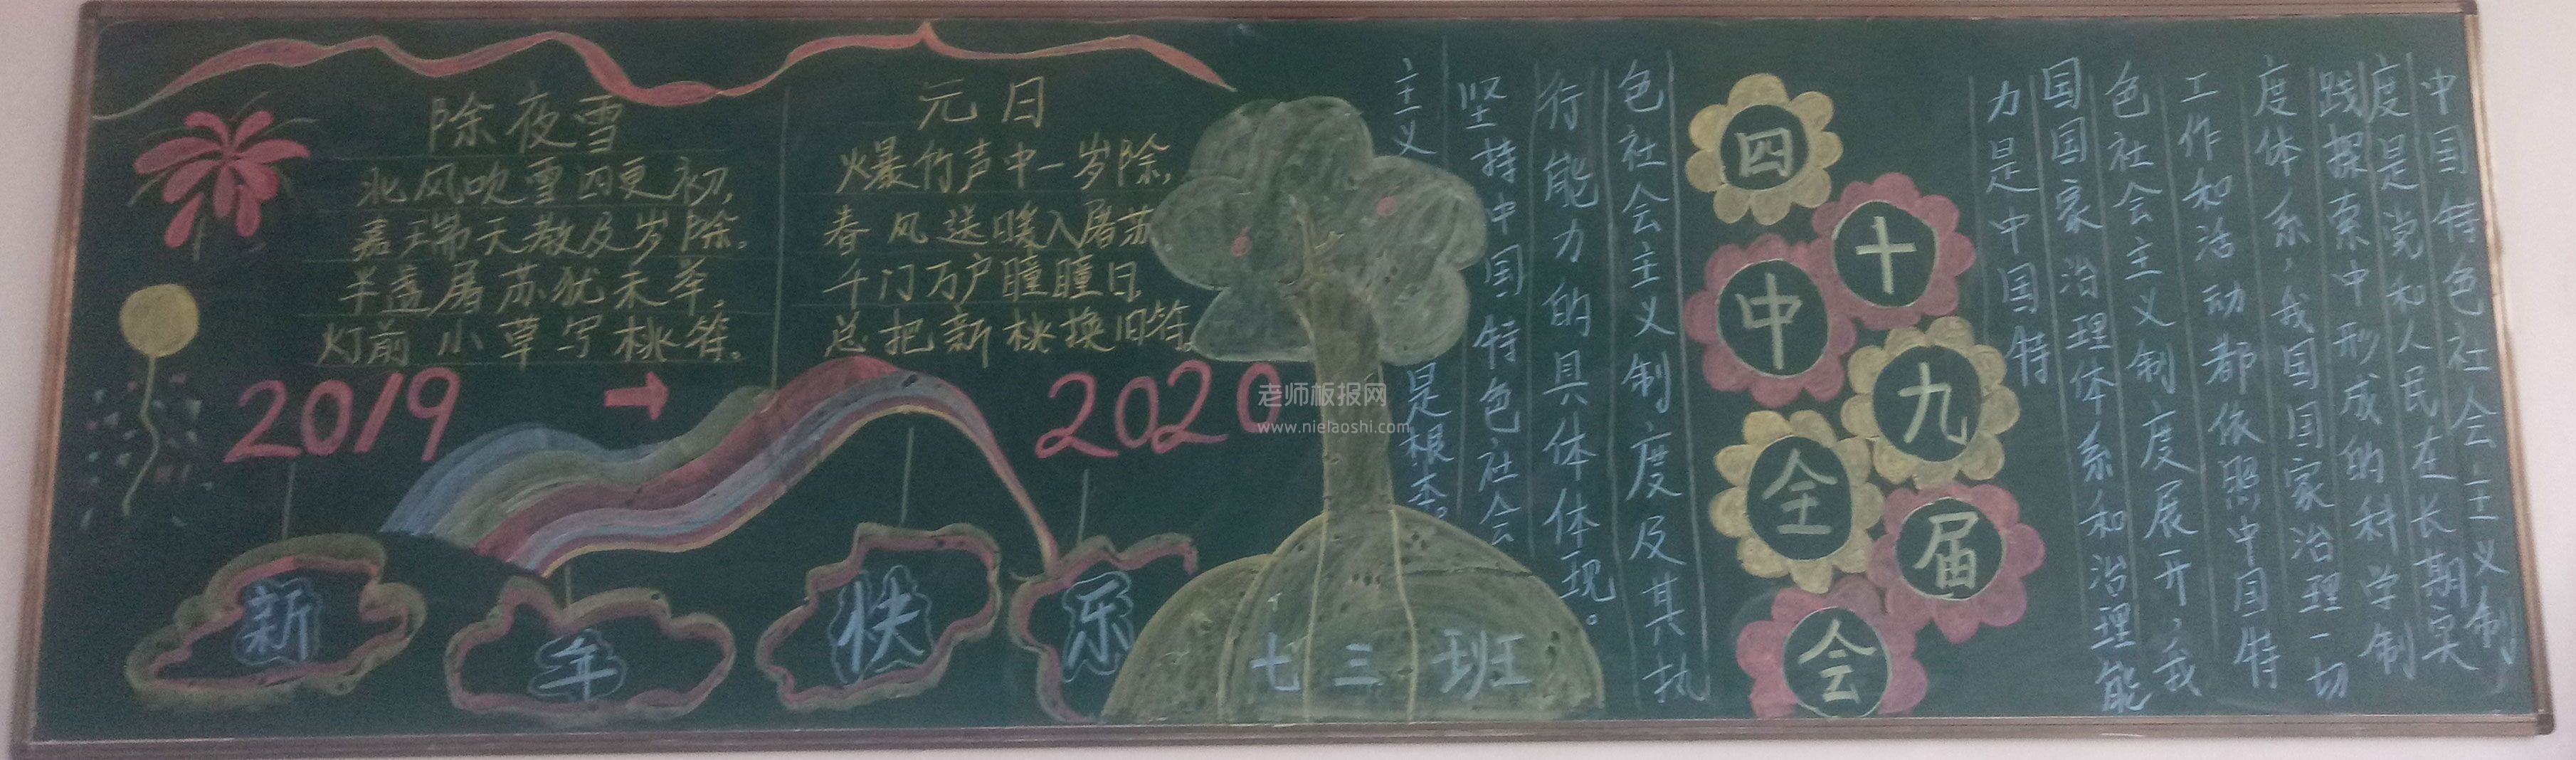 除夜雪
北风吹雪四更初,
嘉瑞天教及岁除。
半盏屠苏犹未举,
灯前小草写桃符。
元日
爆竹声中一岁除,
春风送暖入屠苏
千门万户瞳瞳日
总把新桃换旧符。
2019 → 2020
新年快乐
七三班
老师板报网
www.nielaoshi.com
十九届
四中全会
中国特色社会主义制
度是党和人民在长期实
践探索中形成的科学制
度体系,我国国家治理一切
工作和活动都依照中国特
色社会主义制度展开,我
国国家治理体系和治理能
力是中国特
色社会主义制度及其执
行能力的具体体现。
坚持中国特色社会
主义是根本。